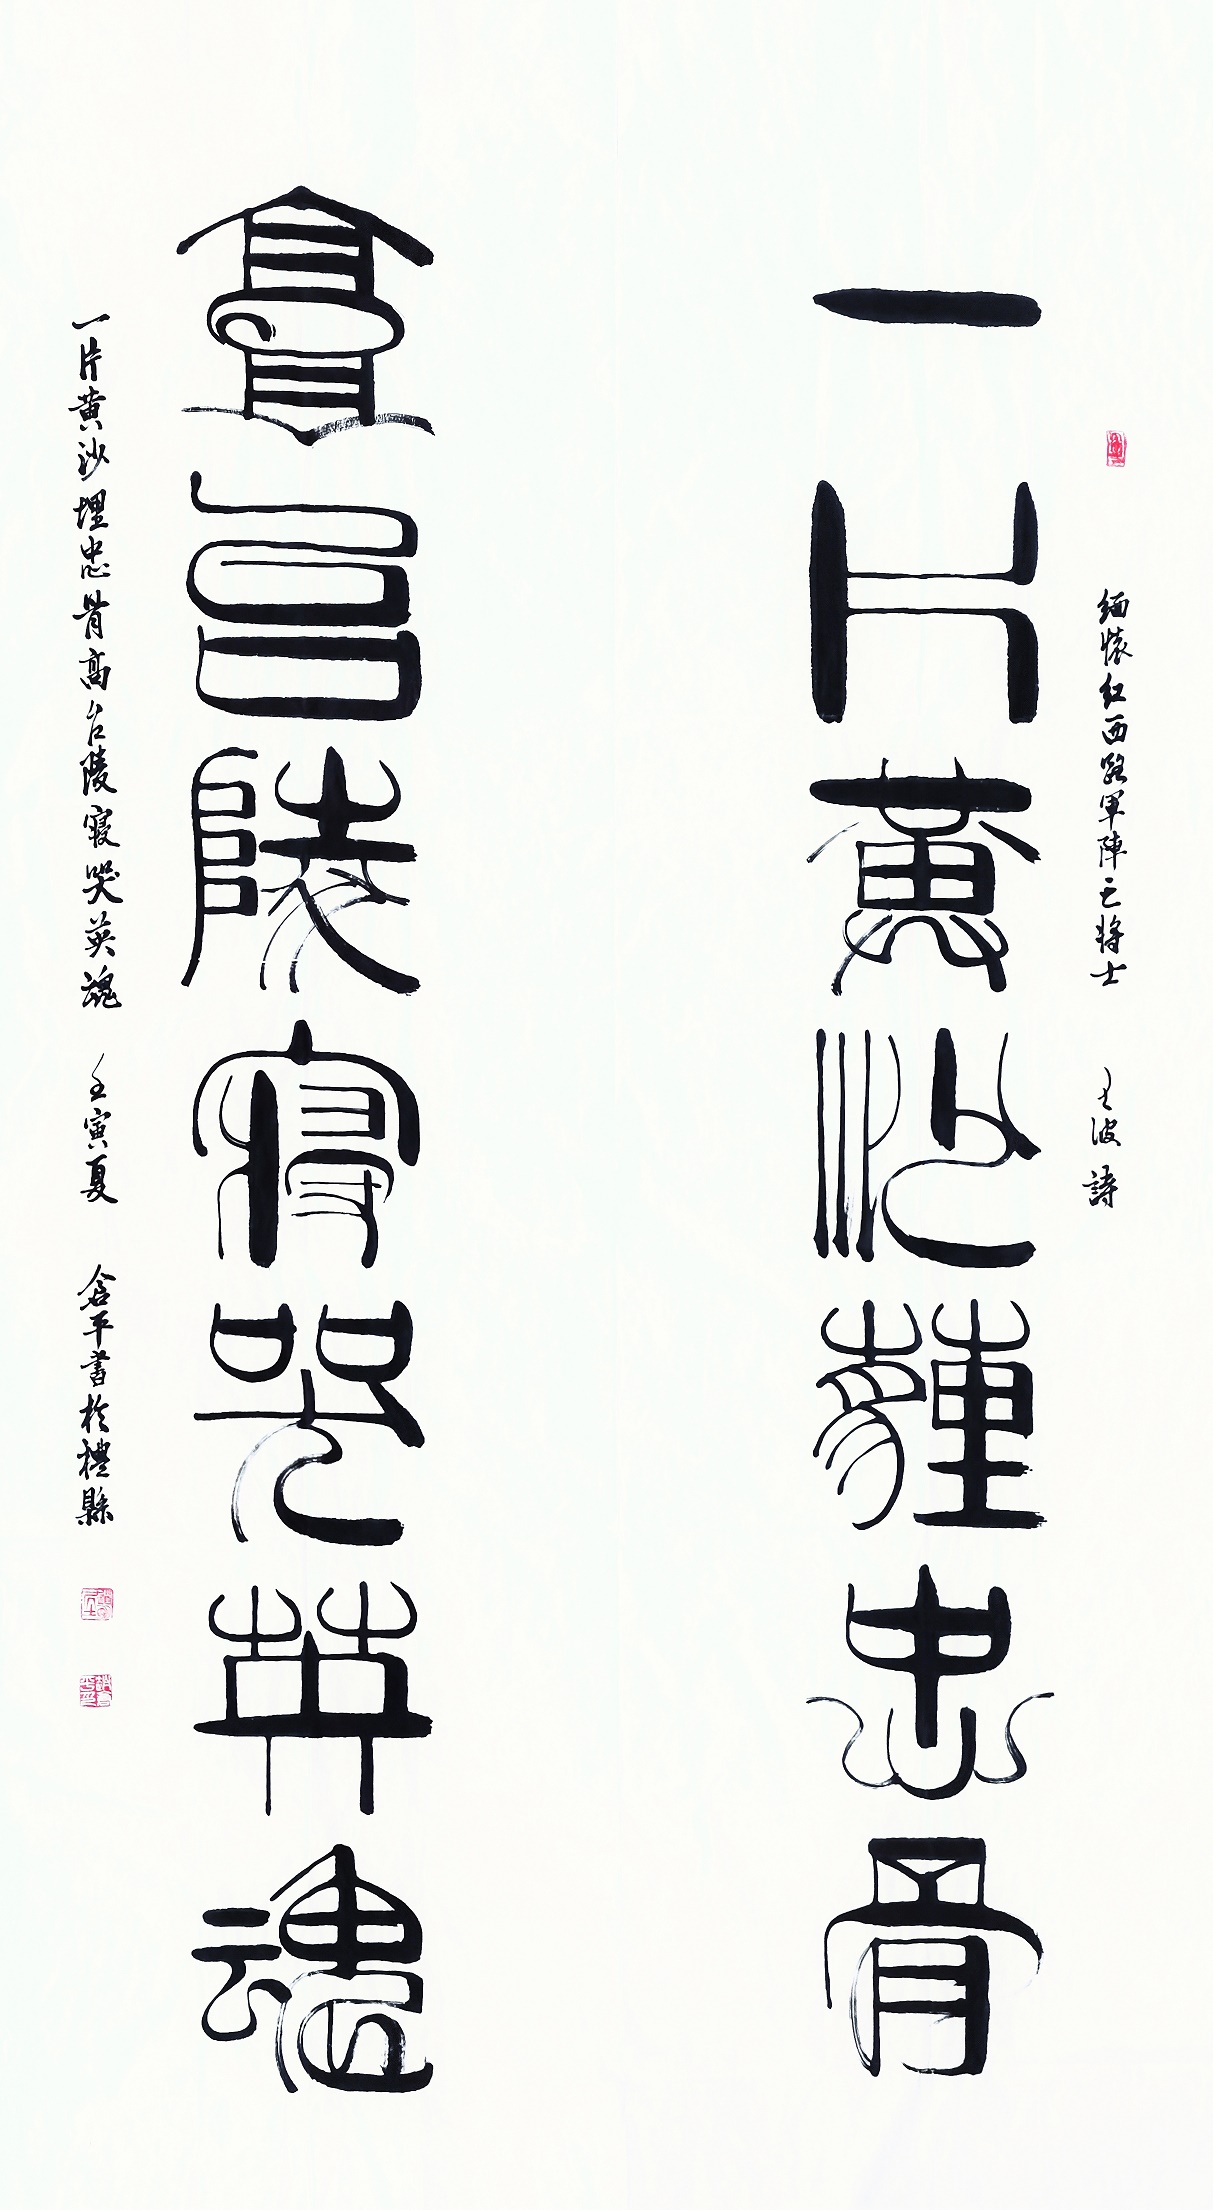 緬懷紅西路軍陣亡將士 王波詩
一片黄沙薶忠骨
高台陵寢哭英魂
一片黄沙埋忠骨高台陵寢哭英魂 壬寅夏 含平書於禮縣